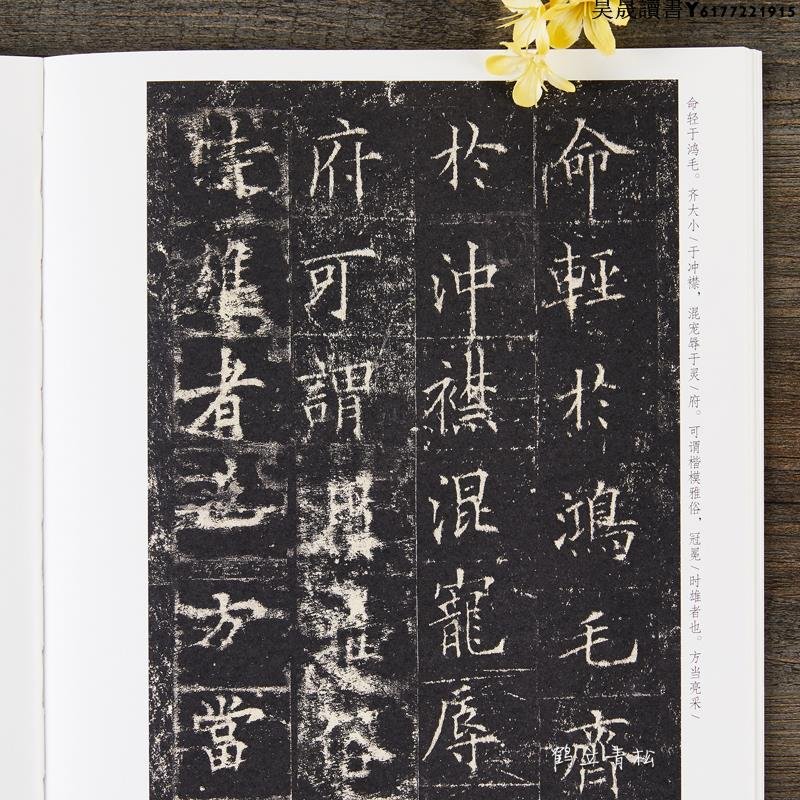 昊晟讀書Y6177221915
命輕於鴻毛齊
於沖襟混寵辱
府可謂
俗
者
方當
命轻于鸿毛。齐大小/于冲襟,混宠辱于灵/府。可谓楷模雅俗,冠冕/时雄者也。方当亮采/
鹤立青松